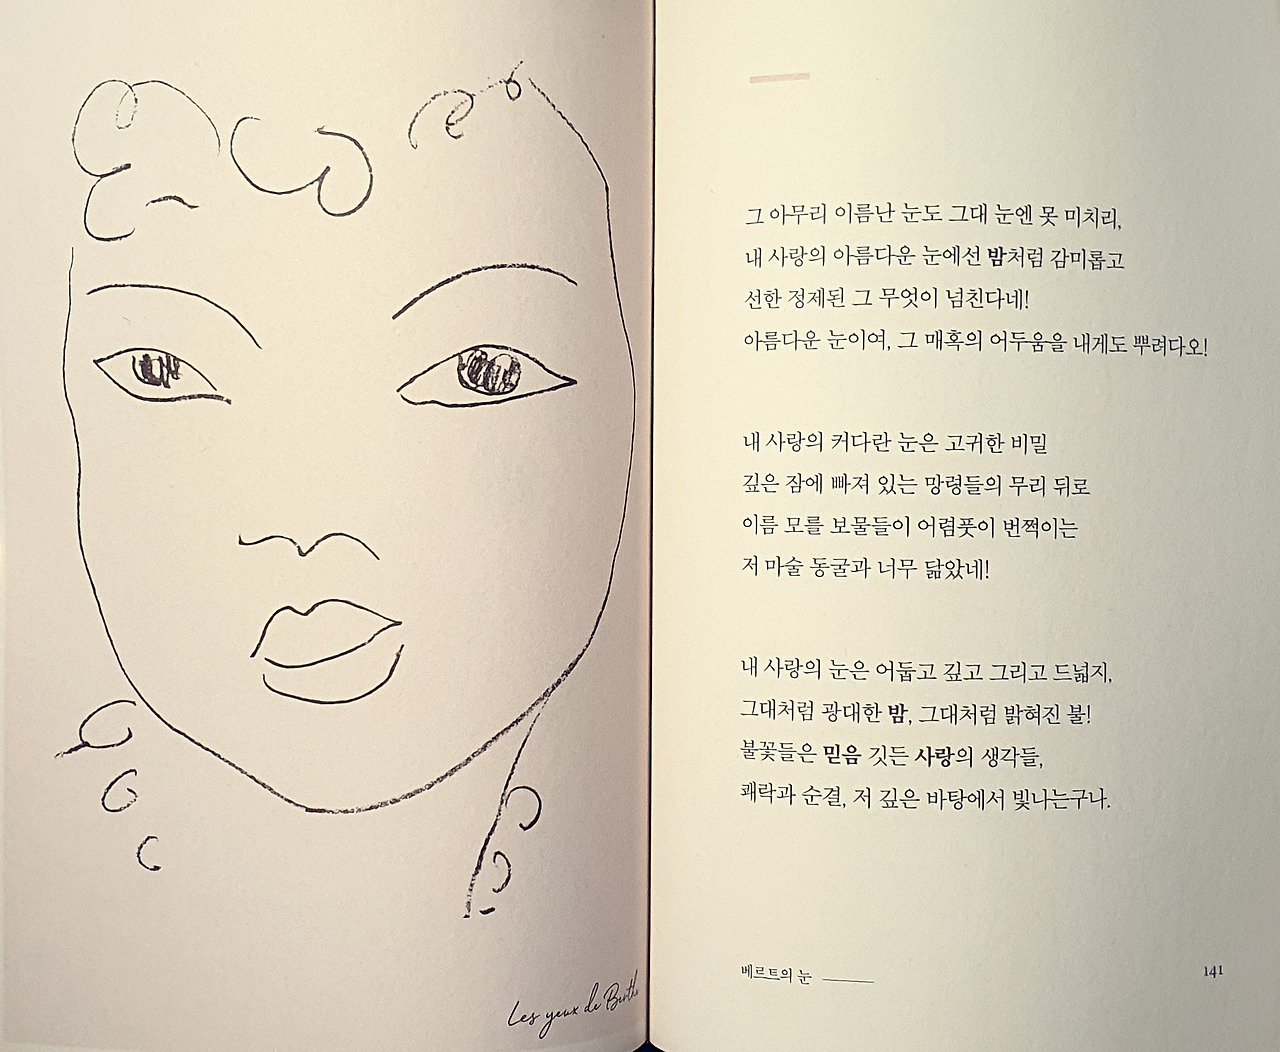 Les yeux de Berthe
그 아무리 이름난 눈도 그대 눈엔 못 미치리,
내 사랑의 아름다운 눈에선 밤처럼 감미롭고
선한 정제된 그 무엇이 넘친다네!
아름다운 눈이여, 그 매혹의 어두움을 내게도 뿌려다오!
내 사랑의 커다란 눈은 고귀한 비밀
깊은 잠에 빠져 있는 망령들의 무리 뒤로
이름 모를 보물들이 어렴풋이 번쩍이는
저 마술 동굴과 너무 닮았네!
내 사랑의 눈은 어둡고 깊고 그리고 드넓지,
그대처럼 광대한 밤, 그대처럼 밝혀진 불!
불꽃들은 믿음 깃든 사랑의 생각들,
쾌락과 순결, 저 깊은 바탕에서 빛나는구나.
베르트의 눈
141